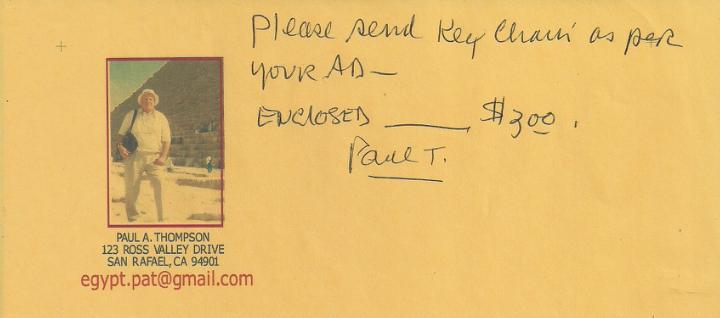 Please send Key Chain as per
YOUR AD—
ENCLOSED ______ $3.00.
Paul T.
PAUL A. THOMPSON
123 ROSS VALLEY DRIVE
SAN RAFAEL, CA 94901
egypt.pat@gmail.com